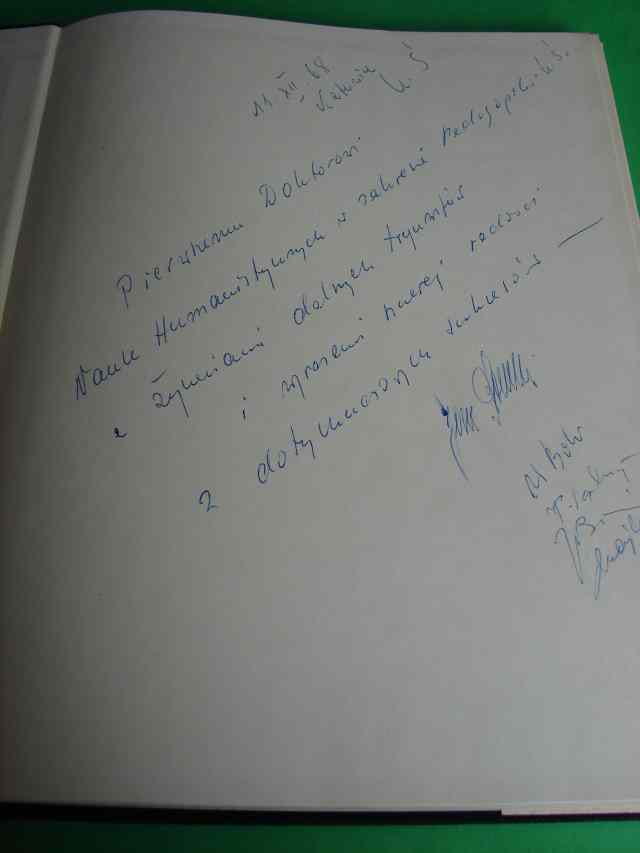 11 XII 68
Katowice
U. Ś
Pierwszemu Doktorowi
Nauk Humanistycznych w zakresie Pedagogiki U.Ś.
z życzeniami dalnych tryumfów
i wyrazami naszej radości
z dotychczasowych sukcesów —